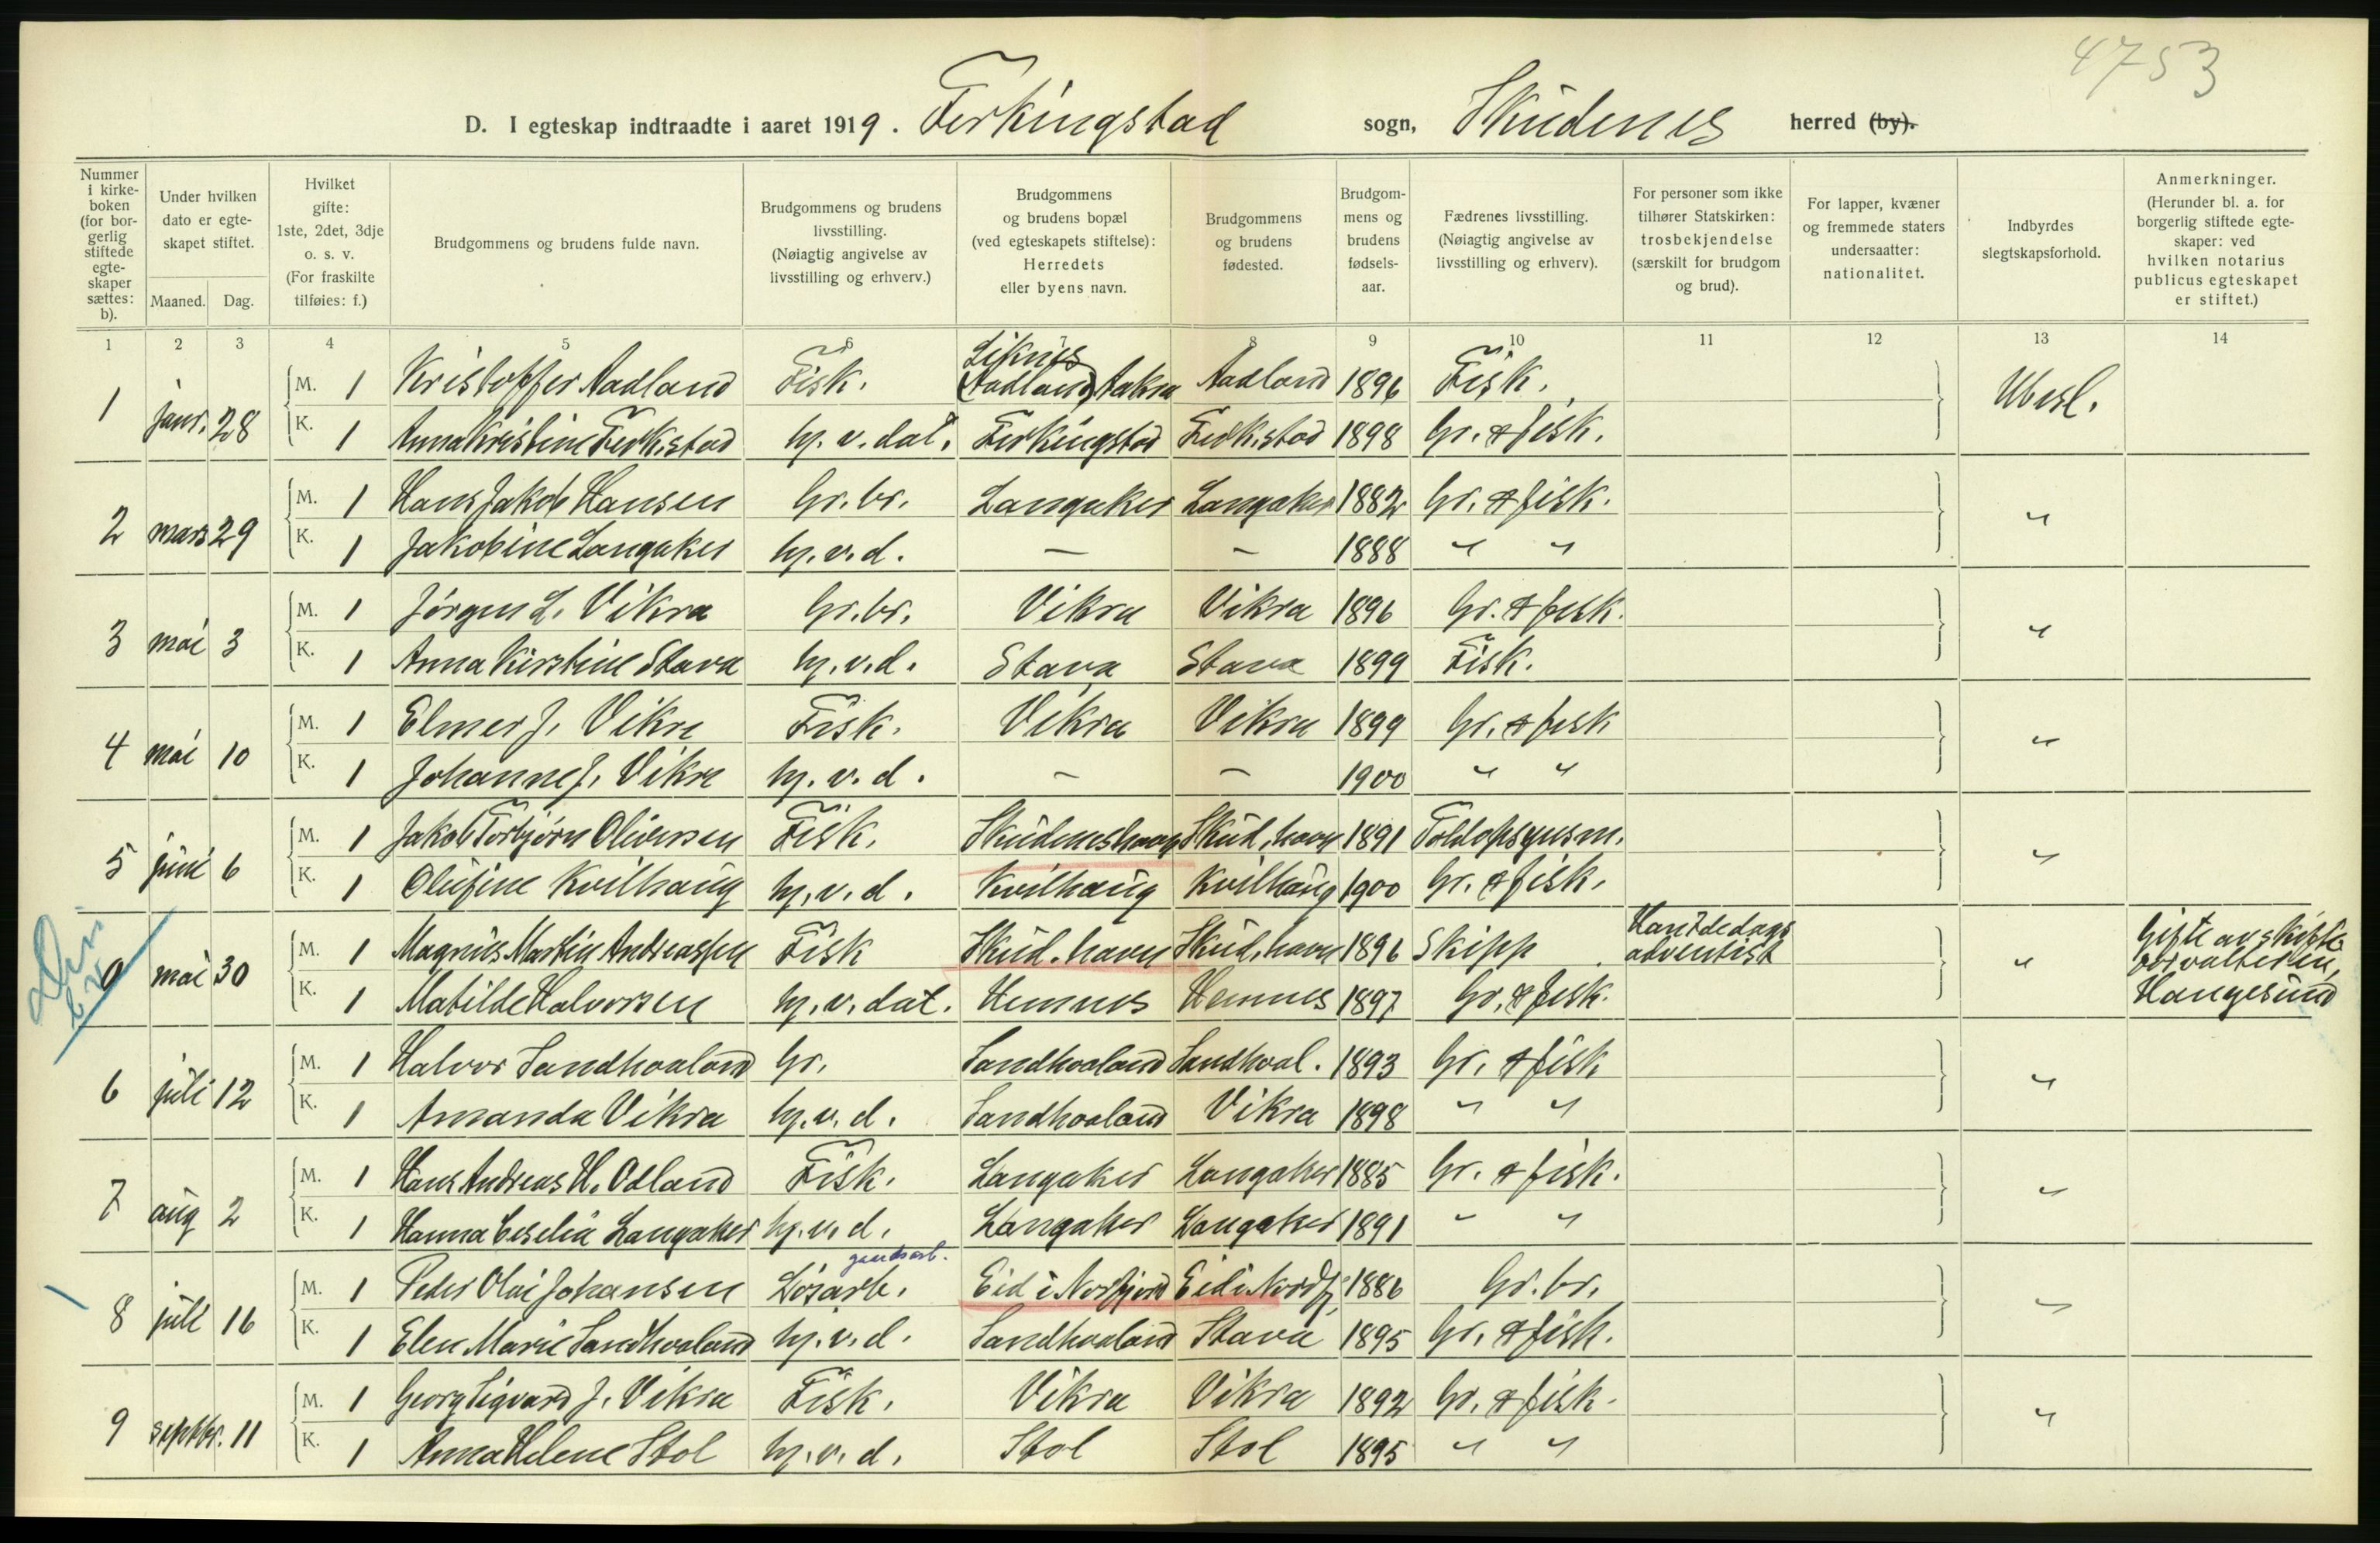 4753
D. I egteskap indtraadte i aaret 1919. Ferkingstad sogn, Skudenes herred (by).
Nummer i kirke-boken (for bor-gerlig stiftede egte-skaper sættes: b).
Under hvilken dato er egte-skapet stiftet.
Maaned. Dag.
Hvilket gifte: 1ste, 2det, 3dje o. s. v. (For fraskilte tilføies: f.)
Brudgommens og brudens fulde navn.
Brudgommens og brudens livsstilling. (Nøiagtig angivelse av livsstilling og erhverv.)
Brudgommens og brudens bopæl (ved egteskapets stiftelse): Herredets eller byens navn.
Brudgommens og brudens fødested.
Brudgom-mens og brudens fødsels-aar.
Fædrenes livsstilling. (Nøiagtig angivelse av livsstilling og erhverv).
For personer som ikke tilhører Statskirken: trosbekjendelse (særskilt for brudgom og brud).
For lapper, kvæner og fremmede staters undersaatter: nationalitet.
Indbyrdes slegtskapsforhold.
Anmerkninger. (Herunder bl. a. for borgerlig stiftede egte-skaper: ved hvilken notarius publicus egteskapet er stiftet.)
1 2 3 4 5 6 7 8 9 10 11 12 13 14
Liknes
1 janr. 28 M. 1 Kristoffer Aadland Fisk. (Aadland) Aakra Aadland 1896 Fisk. Ubesl.
K. 1 Anna Kristine Ferk.stad hj. v. dat. Ferkingstad Ferk.stad 1898 Gr. & fisk.
2 mars 29 M. 1 Hans Jakob Hansen Gr.br. Langaker Langaker 1882 Gr. & fisk. "
K. 1 Jakobine Langaker hj.v.d. — — 1888 " "
3 mai 3 M. 1 Jørgen L. Vikra Gr.br. Vikra Vikra 1896 Gr. & fisk. "
K. 1 Anna Kirstine Stava hj.v.d. Stava Stava 1899 Fisk.
4 mai 10 M. 1 Elmer J. Vikre Fisk. Vikra Vikra 1899 Gr. & fisk "
K. 1 Johanne J. Vikre hj. v. d. — — 1900 " "
5 juni 6 M. 1 Jakob Torbjørn Oliversen Fisk. Skudeneshavn Skud.havn 1891 Toldopsynsm. "
K. 1 Olufine Kvilhaug hj. v. d. Kvilhaug Kvilhaug 1900 Gr. & fisk.
0 mai 30 M. 1 Magnus Martin Andreassen Fisk Skud.havn Skud.havn 1896 Skipp Han 7dedags adventist " Gifte av skifte forvalteren, Haugesund
K. 1 Matilde Halvorsen hj. v. dat. Hemnes Hemnes 1897 Gr. & fisk.
6 juli 12 M. 1 Halvor Sandhoaland Gr. Sandhoaland Sandhoal. 1893 Gr. & fisk "
K. 1 Amanda Vikra hj. v. d. Sandhoaland Vikra 1898 " "
7 aug 2 M. 1 Hans Andreas H. Odland Fisk. Langaker Langaker 1885 Gr. & fisk. "
K. 1 Hanna Ceselia Langaker hj. v. d. Langaker Langaker 1891 " "
8 juli 16 M. 1 Peder Olai Johansen Løsarb. Eid i Norfjord Eid i Nordfj. 1886 Gr.br. "
K. 1 Elen Marie Sandhoaland hj. v. d. Sandhoaland Stava 1895 Gr. & fisk.
9 septbr. 11 M. 1 Georg Sigvard J. Vikra Fisk. Vikra Vikra 1892 Gr. & fisk. "
K. 1 Anna Helene Stol hj. v. d. Stol Stol 1895 " "